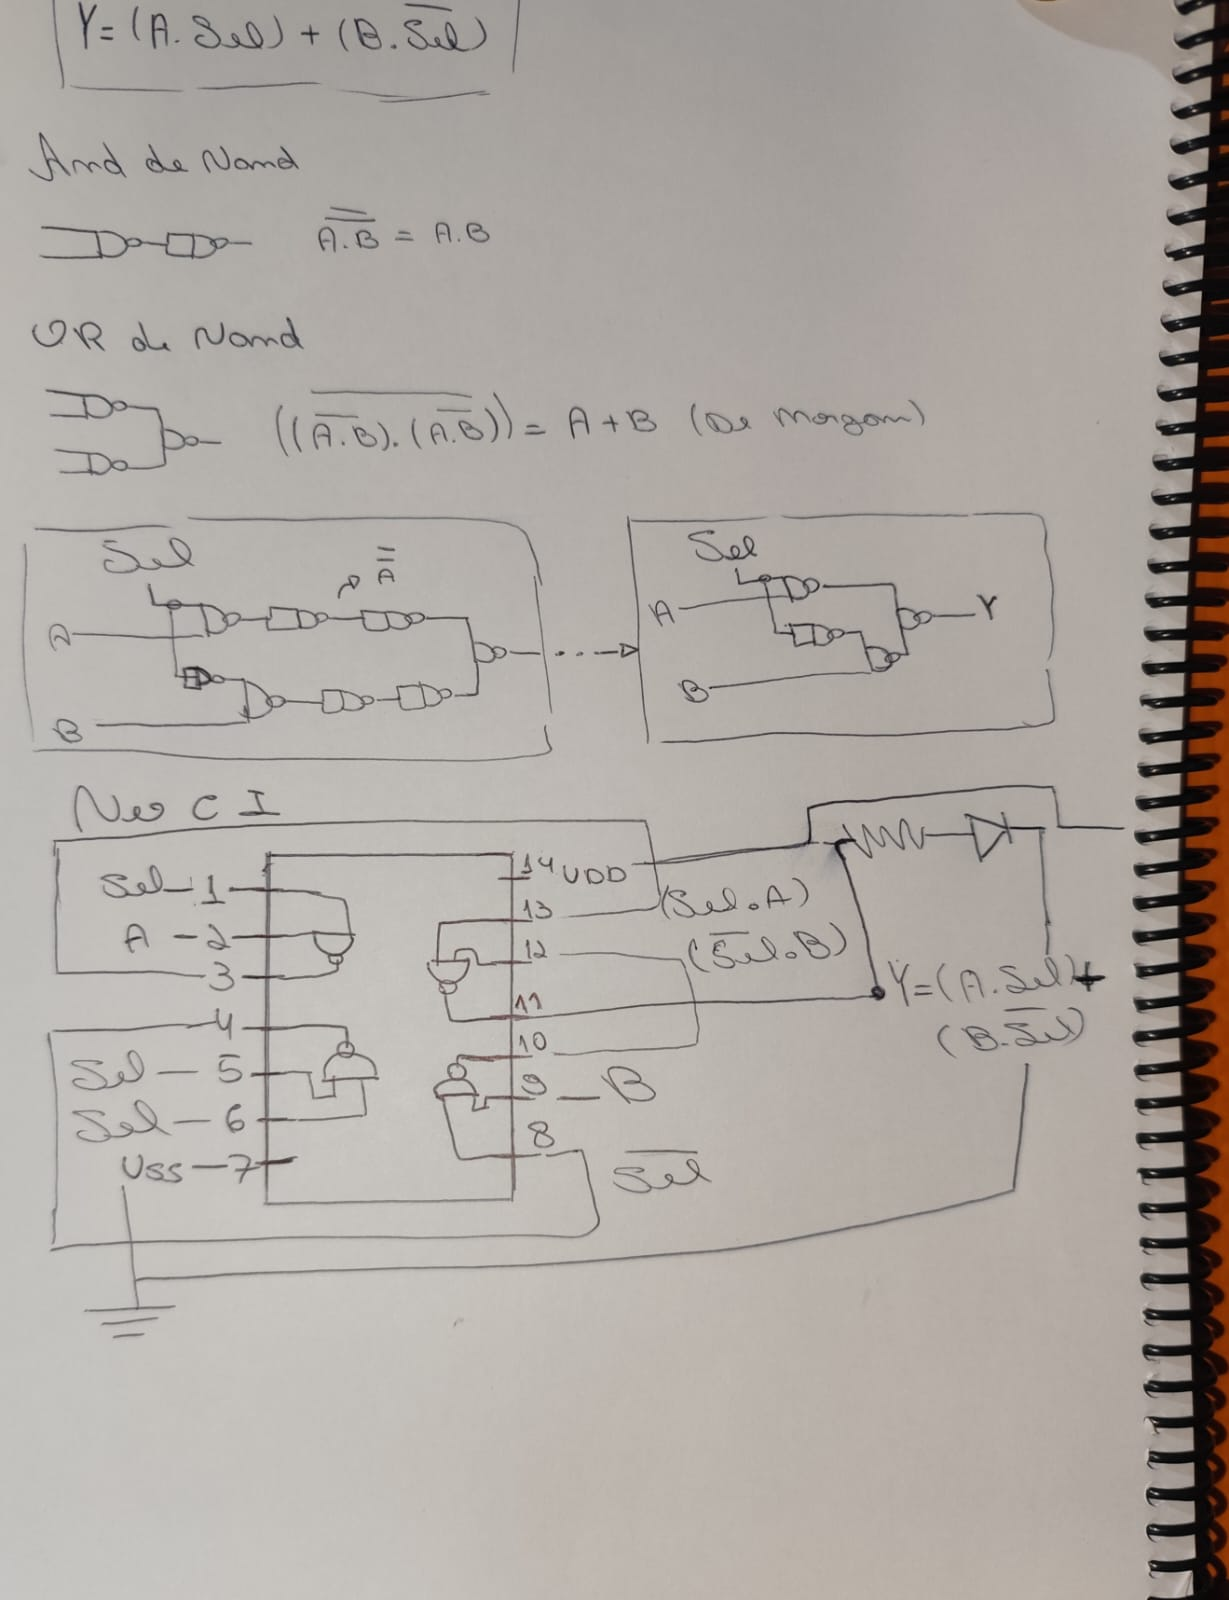 Y = (A. Sel) + (B. S̅e̅l̅)
And de Nand
A̿.̿B̿ = A.B
OR de Nand
((A̅.̅B̅).(A̅.̅B̅)) = A + B (De Morgan)
Sel
A̿
A
B
Sel
A
Y
B
No CI
Sel - 1
A - 2
3
4
Sel - 5
Sel - 6
VSS - 7
14 VDD
13
12
11
10
9 - B
8
(Sel.A)
(S̅e̅l̅.B)
Y = (A.Sel) +
(B.S̅e̅l̅)
S̅e̅l̅